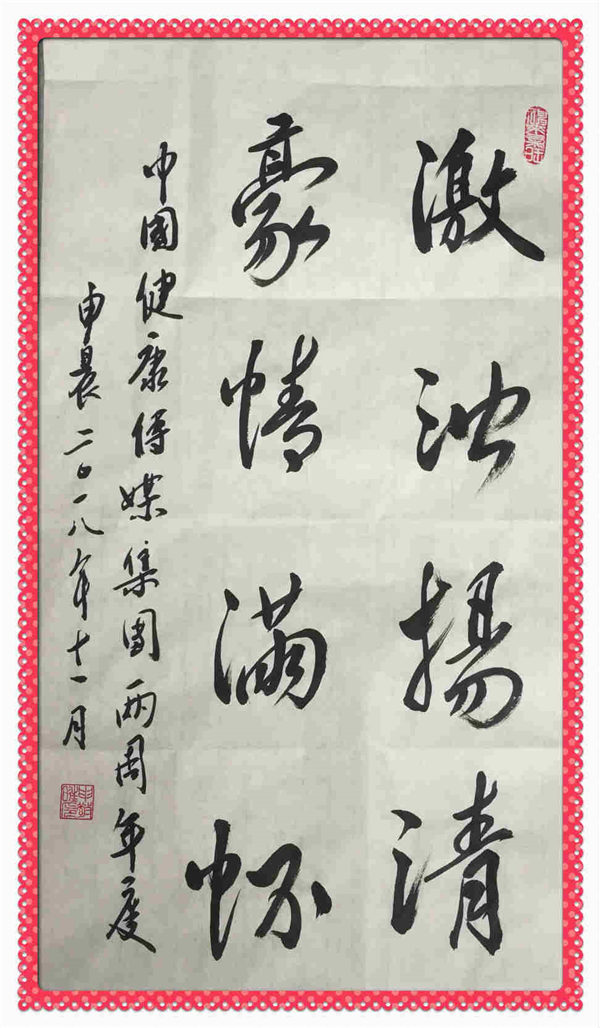 激浊揚清
豪情满怀
中國健康傳媒集團两周年慶
申晨二〇一八年十一月